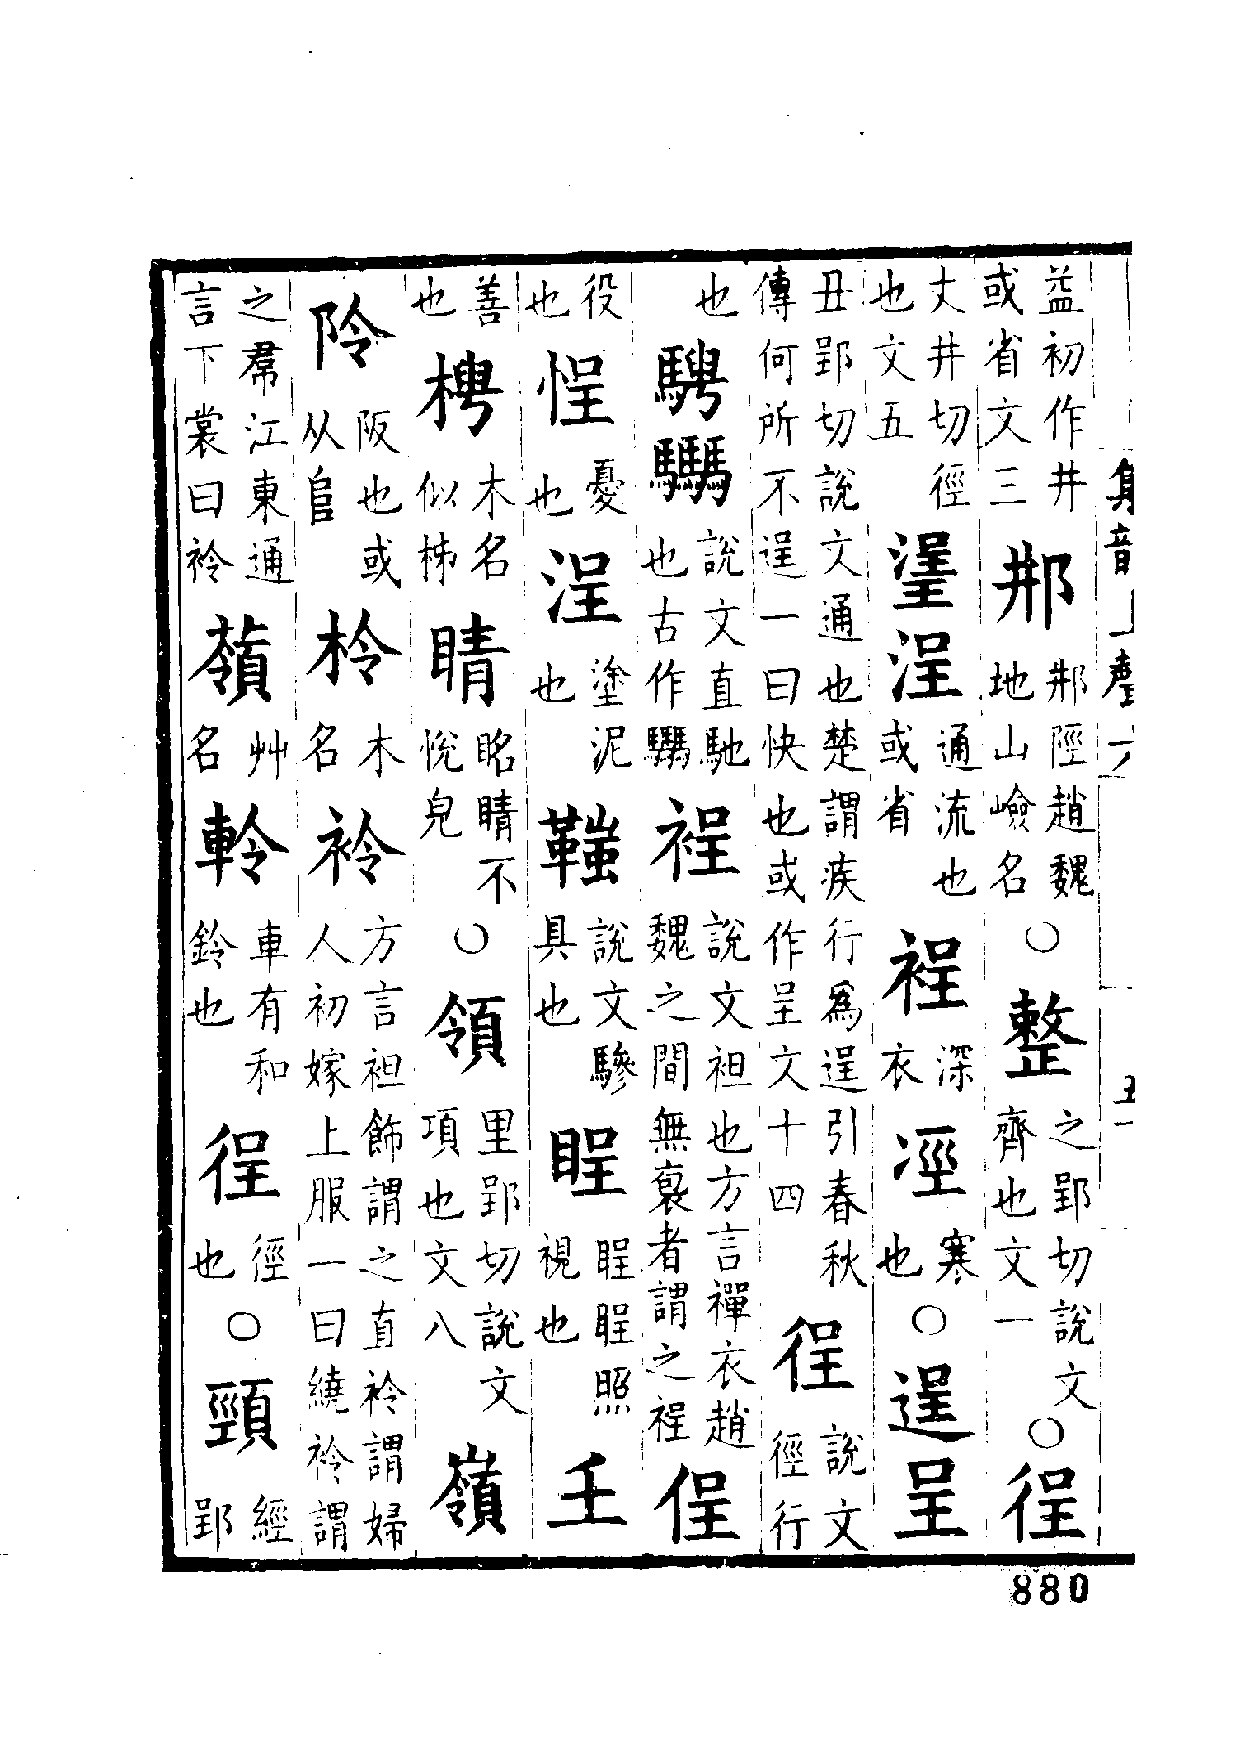 益初作井或省文三邢邢陘趙魏地山嶮名○整之郢切說文齊也文一○徎
丈井切徑也文五塣浧通流也或省裎深衣涇寒也○逞呈
丑郢切說文通也楚謂疾行爲逞引春秋傳何所不逞一曰快也或作呈文十四徎說文徑行
也騁說文直馳也古作裎說文袒也方言襌衣趙魏之間無袌者謂之裎侱
役也悜憂也浧塗泥也說文驂具也睈睈睈照視也壬
善也梬木名似柹睛眳睛不悅皃○領里郢切說文項也文八嶺
阾阪也或从𨸏柃木名衿方言袒飾謂之直衿謂婦人初嫁上服一曰繞衿謂
之帬江東通言下裳曰衿蘏艸名軨車有和鈴也徎徑也○頸經郢
集韻上聲六
五
880